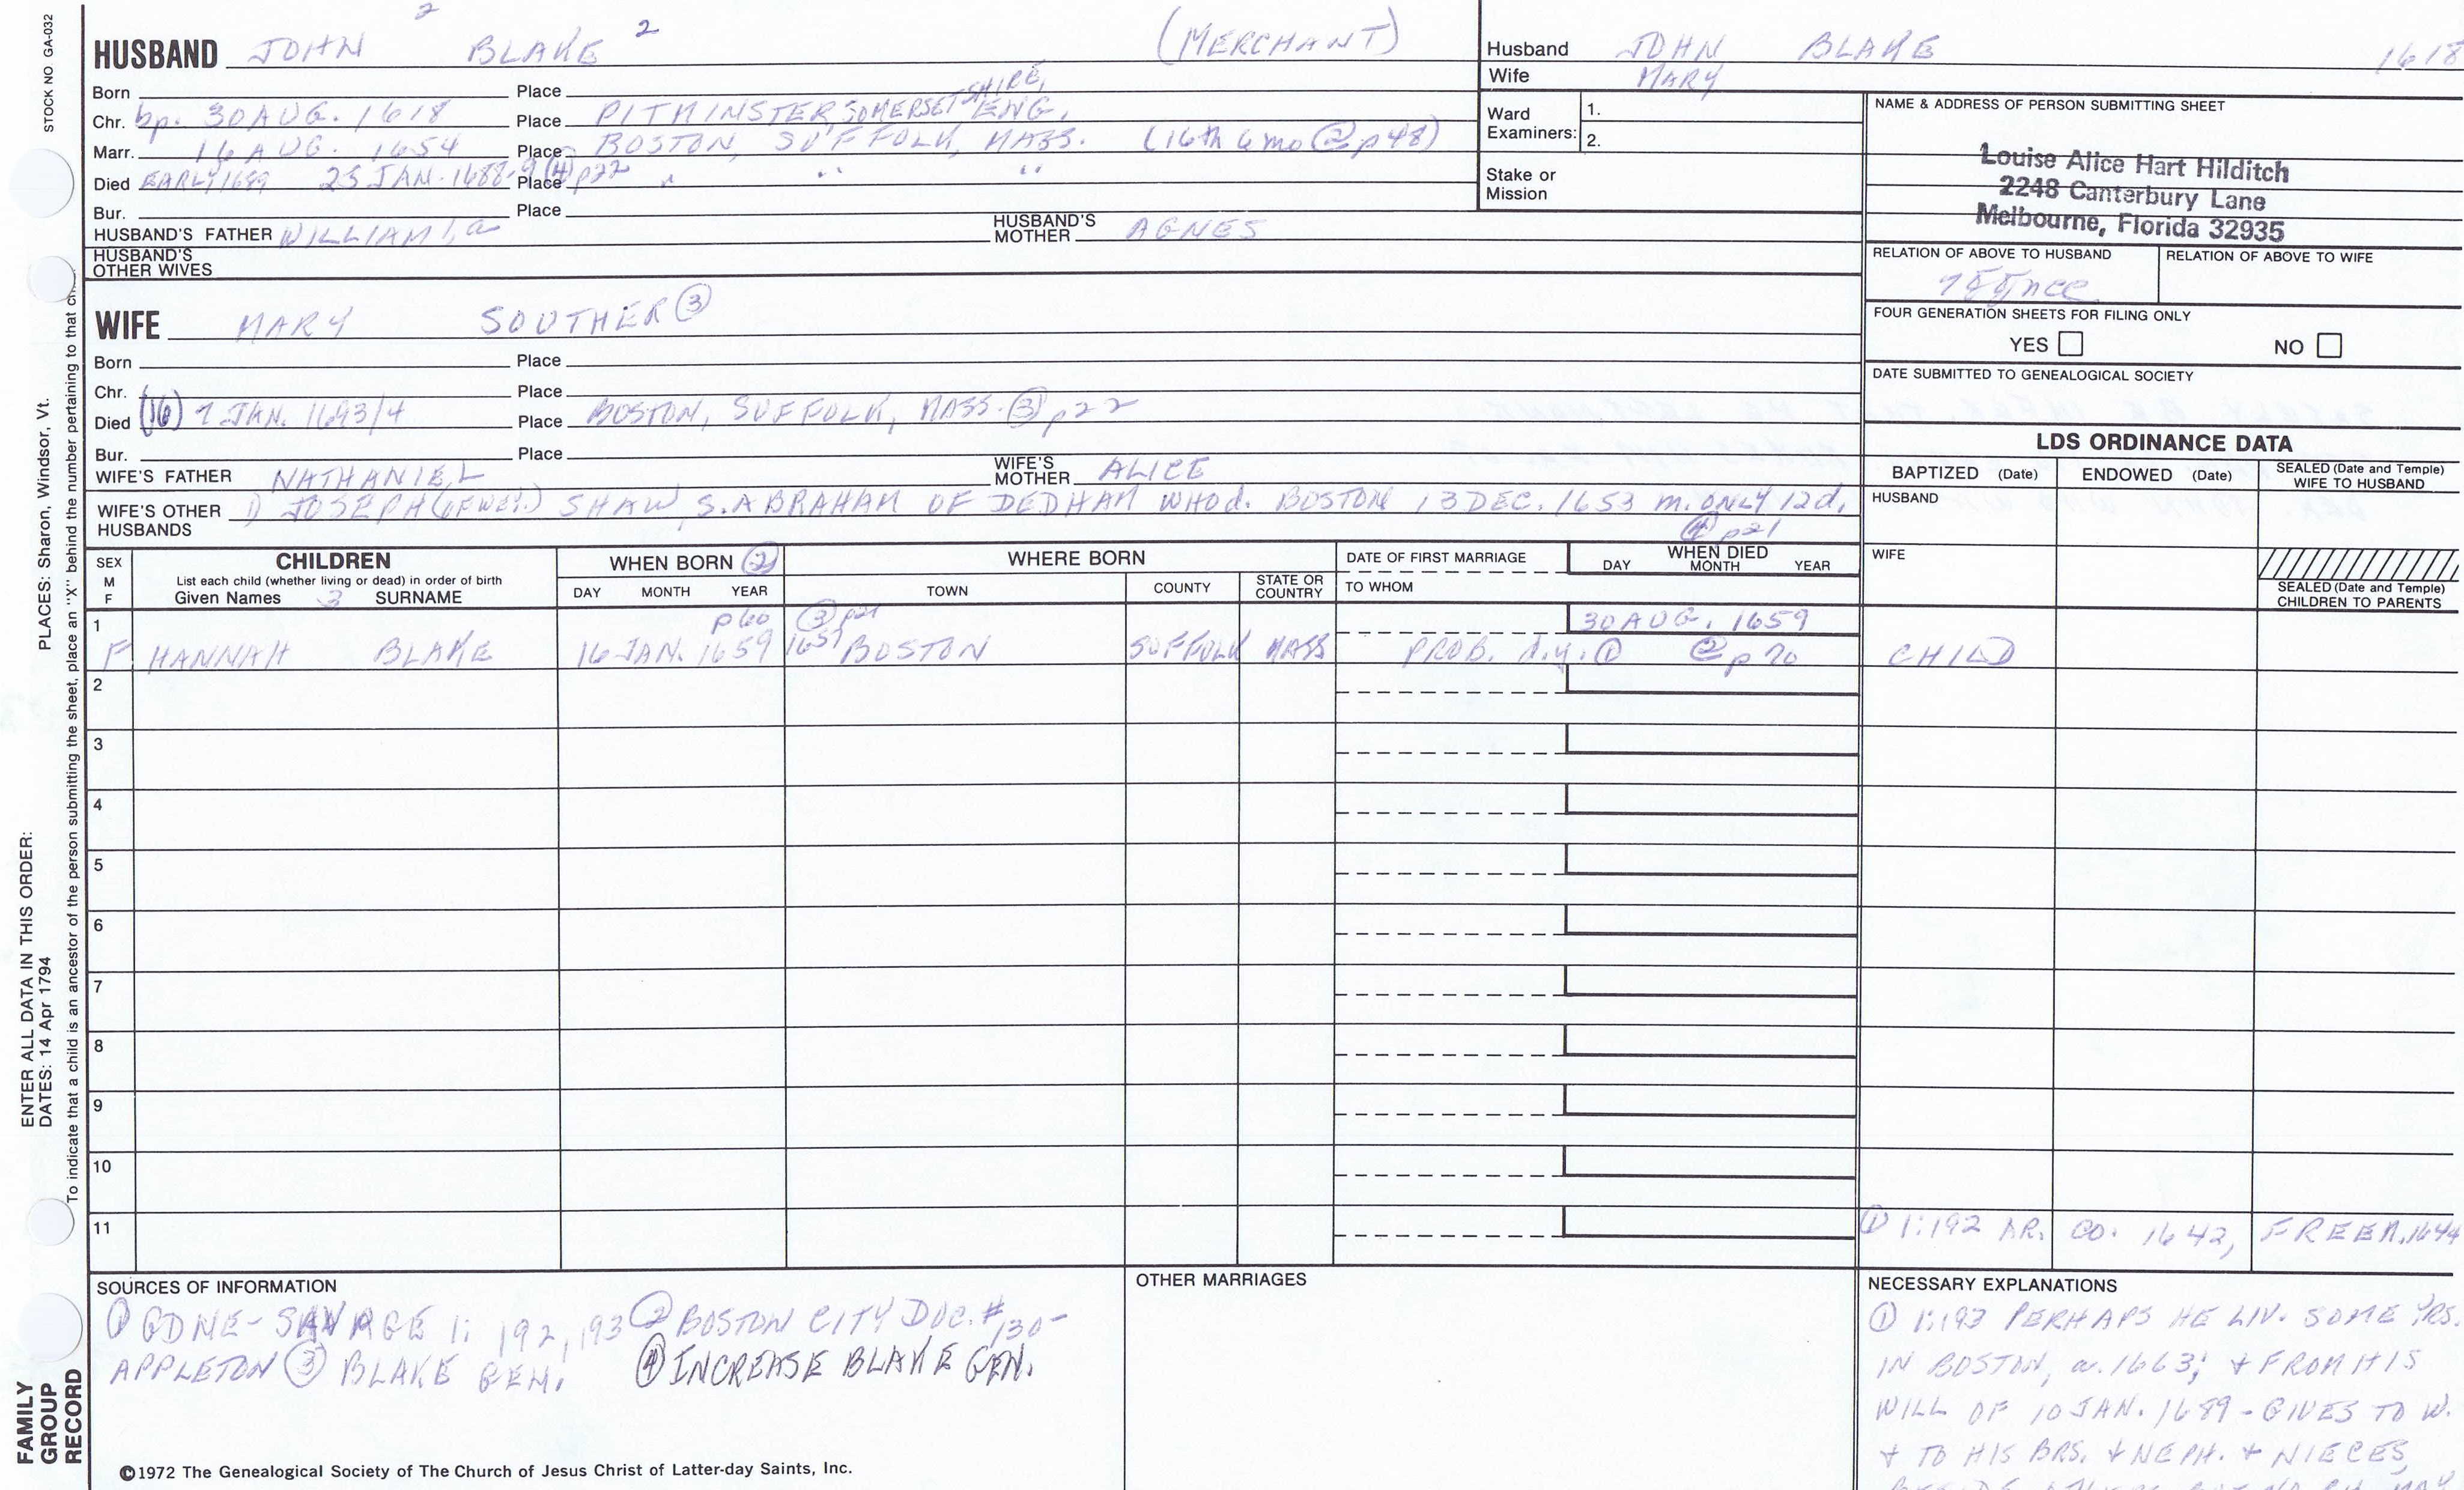 STOCK NO GA-032
PLACES: Sharon, Windsor, Vt.
ENTER ALL DATA IN THIS ORDER:
DATES: 14 Apr 1794
To indicate that a child is an ancestor of the person submitting the sheet, place an "X" behind the number pertaining to that
FAMILY GROUP RECORD
2
HUSBAND JOHN BLAKE 2 (MERCHANT)
Born Place
Chr. bp. 30 AUG. 1618 Place PITMINSTER SOMERSETSHIRE, ENG.
Marr. 16 AUG. 1654 Place BOSTON, SUFFOLK, MASS. (16th 6 mo ② p48)
Died EARLY 1689 25 JAN. 1688-9 ④ p22 Place " " "
Bur. Place
HUSBAND'S FATHER WILLIAM 1, a HUSBAND'S MOTHER AGNES
HUSBAND'S OTHER WIVES
WIFE MARY SOUTHER ③
Born Place
Chr. Place
Died (16) 7 JAN. 1693/4 Place BOSTON, SUFFOLK, MASS. ③ p22
Bur. Place
WIFE'S FATHER NATHANIEL WIFE'S MOTHER ALICE
WIFE'S OTHER HUSBANDS 1) JOSEPH SHAW, S. ABRAHAM OF DEDHAM WHO d. BOSTON 13 DEC. 1653 m. ONLY 12d.
④ p21
Husband JOHN BLAKE 1618
Wife MARY
Ward Examiners: 1.
2.
Stake or Mission
NAME & ADDRESS OF PERSON SUBMITTING SHEET
Louise Alice Hart Hilditch
2248 Canterbury Lane
Melbourne, Florida 32935
RELATION OF ABOVE TO HUSBAND RELATION OF ABOVE TO WIFE
FOUR GENERATION SHEETS FOR FILING ONLY
YES NO
DATE SUBMITTED TO GENEALOGICAL SOCIETY
LDS ORDINANCE DATA
BAPTIZED (Date) ENDOWED (Date) SEALED (Date and Temple) WIFE TO HUSBAND
HUSBAND
WIFE
SEALED (Date and Temple) CHILDREN TO PARENTS
SEX M F
CHILDREN
List each child (whether living or dead) in order of birth
Given Names 3 SURNAME
WHEN BORN ②
DAY MONTH YEAR
WHERE BORN
TOWN COUNTY STATE OR COUNTRY
DATE OF FIRST MARRIAGE
TO WHOM
WHEN DIED
DAY MONTH YEAR
1 p60 ③ p21 30 AUG. 1659
F HANNAH BLAKE 16 JAN. 1659 1657 BOSTON SUFFOLK MASS PROB. d.y. ① ② p 70 CHILD
2
3
4
5
6
7
8
9
10
11 ① 1:192 AR. CO. 1642, FREEM. 1644
SOURCES OF INFORMATION
① GDNE-SAVAGE 1: 192, 193 ② BOSTON CITY DOC. # 130-
APPLETON ③ BLAKE GEN. ④ INCREASE BLAKE GEN.
OTHER MARRIAGES
NECESSARY EXPLANATIONS
① 1:193 PERHAPS HE LIV. SOME YRS.
IN BOSTON, a. 1663; + FROM HIS
WILL OF 10 JAN. 1689 - GIVES TO W.
+ TO HIS BRS. + NEPH. + NIECES,
©1972 The Genealogical Society of The Church of Jesus Christ of Latter-day Saints, Inc.